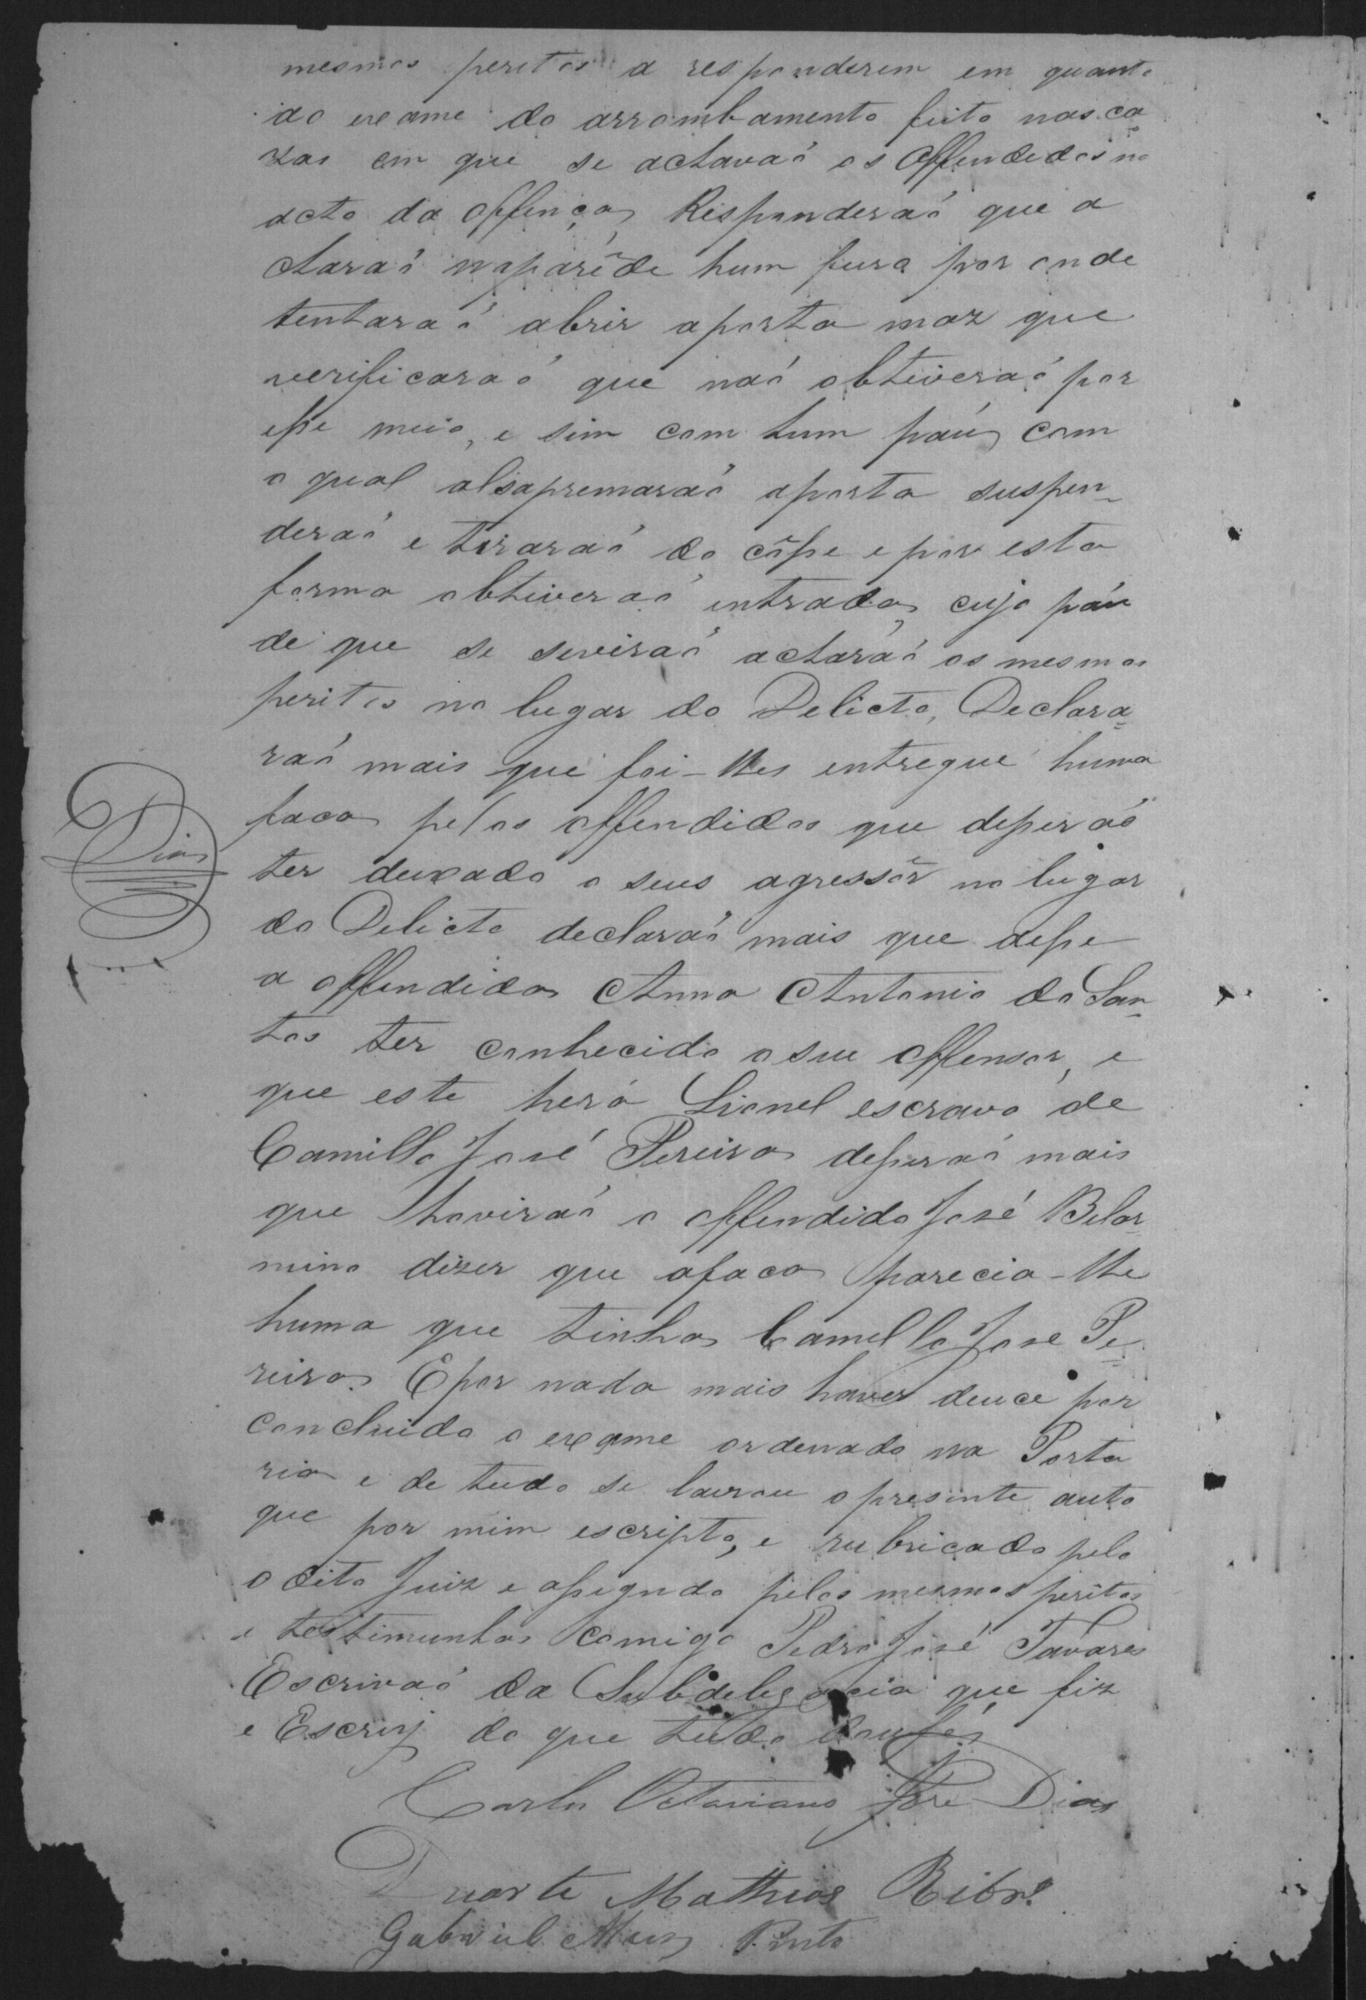 mesmos peritos a responderem em quanto
ao exame do arrombamento feito nas ca
zas em que se achavaõ os Offendidos no
acto da offença, Responderaõ que a
charaõ na parêde hum furo por onde
tentaraõ abrir a porta maz que
verificaraõ que naõ obtiveraõ por
esse meio, e sim com hum páu, com
o qual alsapremaraõ a porta suspen-
deraõ e tiraraõ do
forma obtiveraõ entrada, cujo páu
de que se serviraõ acharaõ os mesmos
peritos no lugar do Delicto, Declara-
raõ mais que foi-lhes entregue huma
faca pelos offendidos que disseraõ
ter deixado o seus agressôr no lugar
do Delicto declaraõ mais que disse
a offendida Anna Antonia do San-
tos ter conhecido o seu offensor, e
que este hera Lionel escravo de
Camillo José Pereira disseraõ mais
que houviraõ o offendido José Belar-
mino dizer que a faca parecia-lhe
huma que tinha Camillo Jose Pe-
reira. E por nada mais haver deuce por
concluido o exame ordenado na Porta
ria e de tudo se lavrou o presente auto
que por mim escripto, e rubricado pelo
o dito Juiz e assignado pelos mesmos peritos
e testimunhas comigo Pedro José Tavares
Escrivaõ da Subdelegacia que fiz
e Escrivy do que tudo dou fé
Dias
Carlos Octaviano José Dias
Duarte Mathias Ribrº
Gabriel Pinto